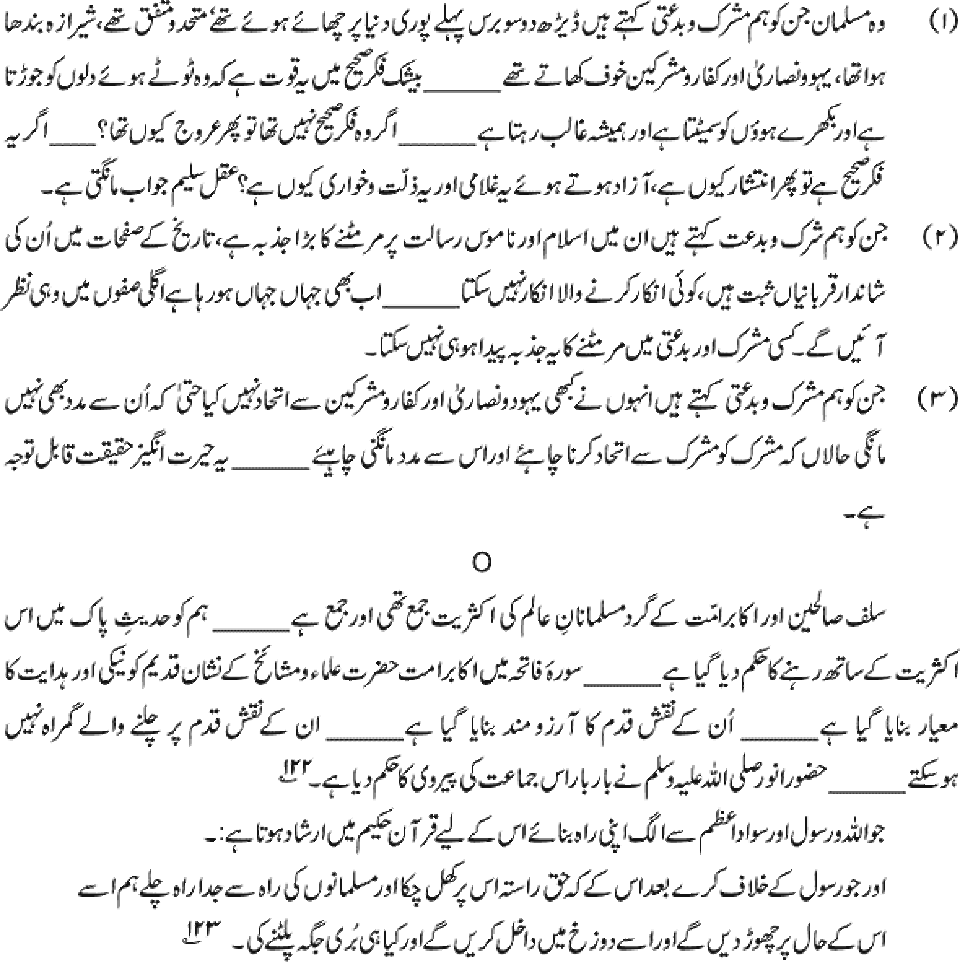 (۱) وہ مسلمان جن کو ہم مشرک و بدعتی کہتے ہیں ڈیڑھ دو سو برس پہلے پوری دنیا پر چھائے ہوئے تھے، متحد و متفق تھے، شیرازہ بندھا
ہوا تھا، یہود و نصاریٰ اور کفار و مشرکین خوف کھاتے تھے ______ بیشک فکر صحیح میں یہ قوت ہے کہ وہ ٹوٹے ہوئے دلوں کو جوڑتا
ہے اور بکھرے ہوؤں کو سمیٹتا ہے اور ہمیشہ غالب رہتا ہے ______ اگر وہ فکر صحیح نہیں تھا تو پھر عروج کیوں تھا؟ ____ اگر یہ
فکر صحیح ہے تو پھر انتشار کیوں ہے، آزاد ہوتے ہوئے یہ غلامی اور یہ ذلّت و خواری کیوں ہے؟ عقل سلیم جواب مانگتی ہے۔
(۲) جن کو ہم شرک و بدعت کہتے ہیں ان میں اسلام اور ناموس رسالت پر مرمٹنے کا بڑا جذبہ ہے، تاریخ کے صفحات میں اُن کی
شاندار قربانیاں ثبت ہیں، کوئی انکار کرنے والا انکار نہیں سکتا ______ اب بھی جہاں جہاں ہو رہا ہے اگلی صفوں میں وہی نظر
آئیں گے۔ کسی مشرک اور بدعتی میں مرمٹنے کا یہ جذبہ پیدا ہو ہی نہیں سکتا۔
(۳) جن کو ہم مشرک و بدعتی کہتے ہیں انہوں نے کبھی یہود و نصاریٰ اور کفار و مشرکین سے اتحاد نہیں کیا حتیٰ کہ اُن سے مدد بھی نہیں
مانگی حالاں کہ مشرک کو مشرک سے اتحاد کرنا چاہئے اور اس سے مدد مانگنی چاہیئے ______ یہ حیرت انگیز حقیقت قابل توجہ
ہے۔
O
سلف صالحین اور اکابر امّت کے گرد مسلمانانِ عالم کی اکثریت جمع تھی اور جمع ہے ______ ہم کو حدیثِ پاک میں اس
اکثریت کے ساتھ رہنے کا حکم دیا گیا ہے ______ سورۂ فاتحہ میں اکابر امت حضرت علماء و مشائخ کے نشان قدیم کو نیکی اور ہدایت کا
معیار بنایا گیا ہے ______ اُن کے نقش قدم کا آرزو مند بنایا گیا ہے ______ ان کے نقش قدم پر چلنے والے گمراہ نہیں
ہو سکتے ______ حضور انور صلی اللہ علیہ وسلم نے بار بار اس جماعت کی پیروی کا حکم دیا ہے۔ ۱۲۲
جو اللہ و رسول اور سواد اعظم سے الگ اپنی راہ بنائے اس کے لیے قرآن حکیم میں ارشاد ہوتا ہے:۔
اور جو رسول کے خلاف کرے بعد اس کے کہ حق راستہ اس پر کھل چکا اور مسلمانوں کی راہ سے جدا راہ چلے ہم اسے
اس کے حال پر چھوڑ دیں گے اور اسے دوزخ میں داخل کریں گے اور کیا ہی بُری جگہ پلٹنے کی۔ ۱۲۳